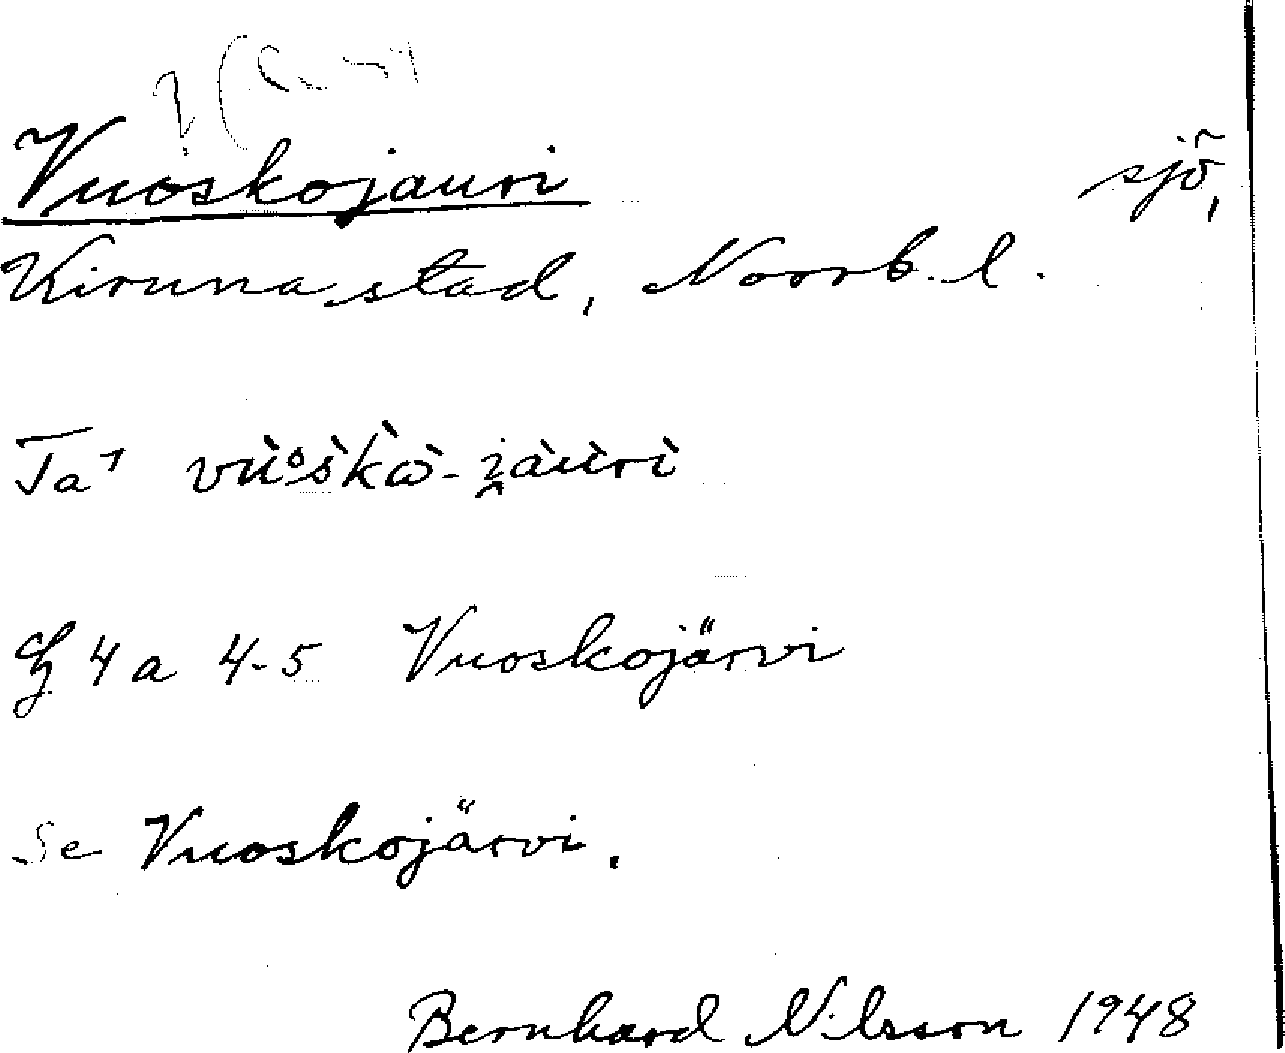 Vuoskojauri sjö,
Kiruna stad, Norrb. l.
Ta⁊ vùo̊s̀k̀ὼ-i̯àùrì
4a 4-5 Vuoskojärvi
Se Vuoskojärvi.
Bernhard Nilsson 1948